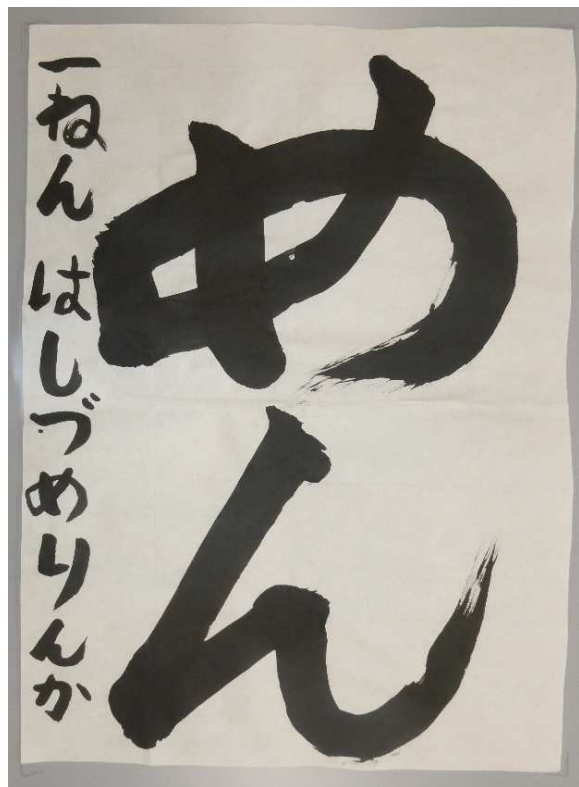 めん
一ねん はしづめりんか